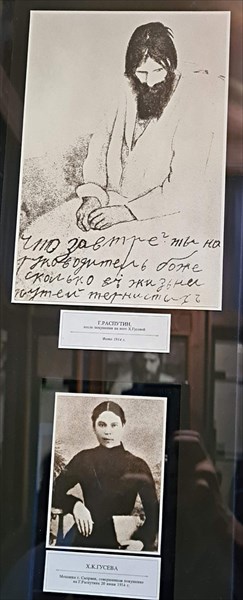 Что завтре? ты наш
руководитель боже
сколько в жизни
путей тернистых
Г.РАСПУТИН
после покушения на него Х.Гусевой
Июнь 1914 г.
Х.К.ГУСЕВА
Мещанка г. Сызрани, совершившая покушение
на Г.Распутина 29 июня 1914 г.